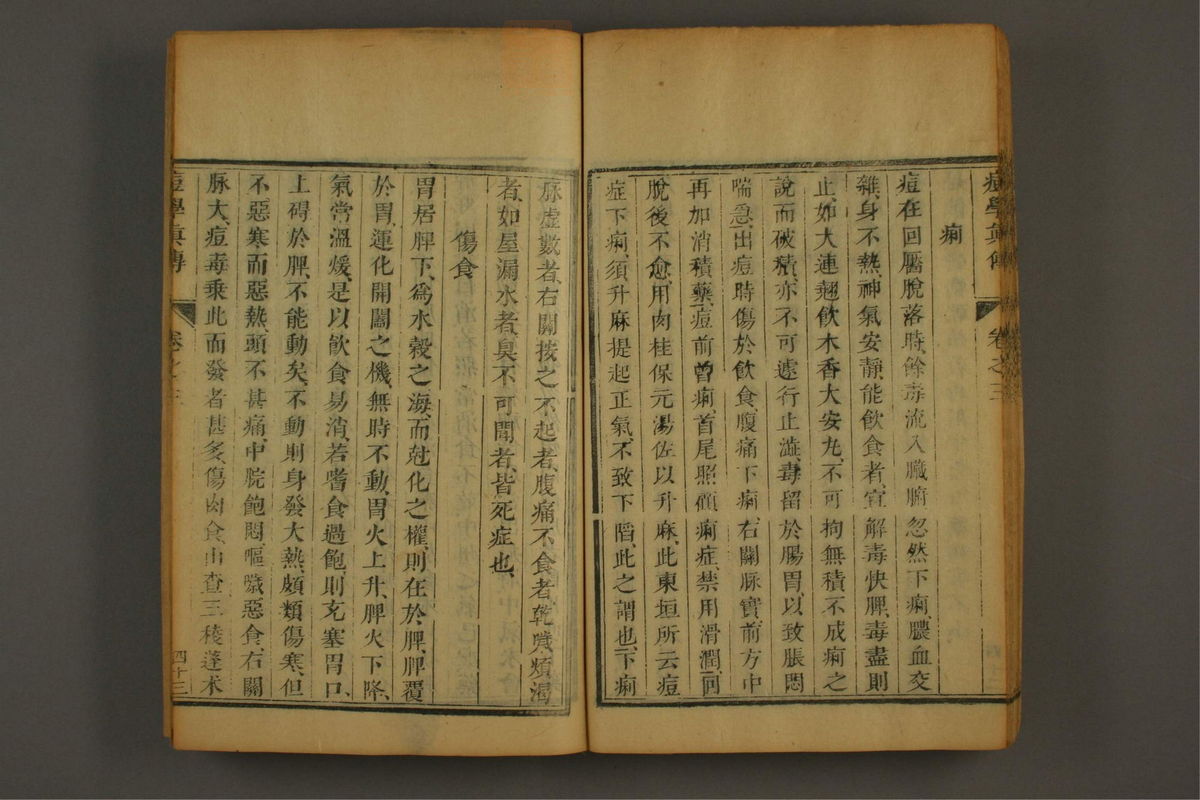 痘學眞傳 卷之三
痢
痘在回靨脫落時、餘毒流入臟腑、忽然下痢、膿血交
雜、身不熱、神氣安靜、能飲食者、宜解毒快脾、毒盡則
止、如大連翹飲、木香大安丸、不可拘無積不成痢之
說而破積、亦不可遽行止澁、毒留於腸胃、以致脹悶
喘急、出痘時傷於飲食、腹痛下痢、右關脉實、前方中
再加消積藥、痘前曾痢、首尾照顧、痢症禁用滑潤、回
脫後不愈、用肉桂保元湯、佐以升麻、此東垣所云痘
症下痢、須升麻提起正氣、不致下陷、此之謂也、下痢
脉虛數者、右關按之不起者、腹痛不食者、乾嘔煩渴
者、如屋漏水者、臭不可聞者、皆死症也、
傷食
胃居脾下、爲水榖之海、而尅化之權、則在於脾、脾覆
於胃、運化開闔之機、無時不動、胃火上升、脾火下降、
氣常溫煖、是以飲食易消、若嗜食過飽、則充塞胃口、
上碍於脾、不能動矣、不動則身發大熱、頗類傷寒、但
不惡寒而惡熱、頭不甚痛、中脘飽悶、嘔噦惡食、右關
脉大、痘毒乘此而發者甚多、傷肉食、山查三稜蓬术
痘學眞傳 卷之三 四十三